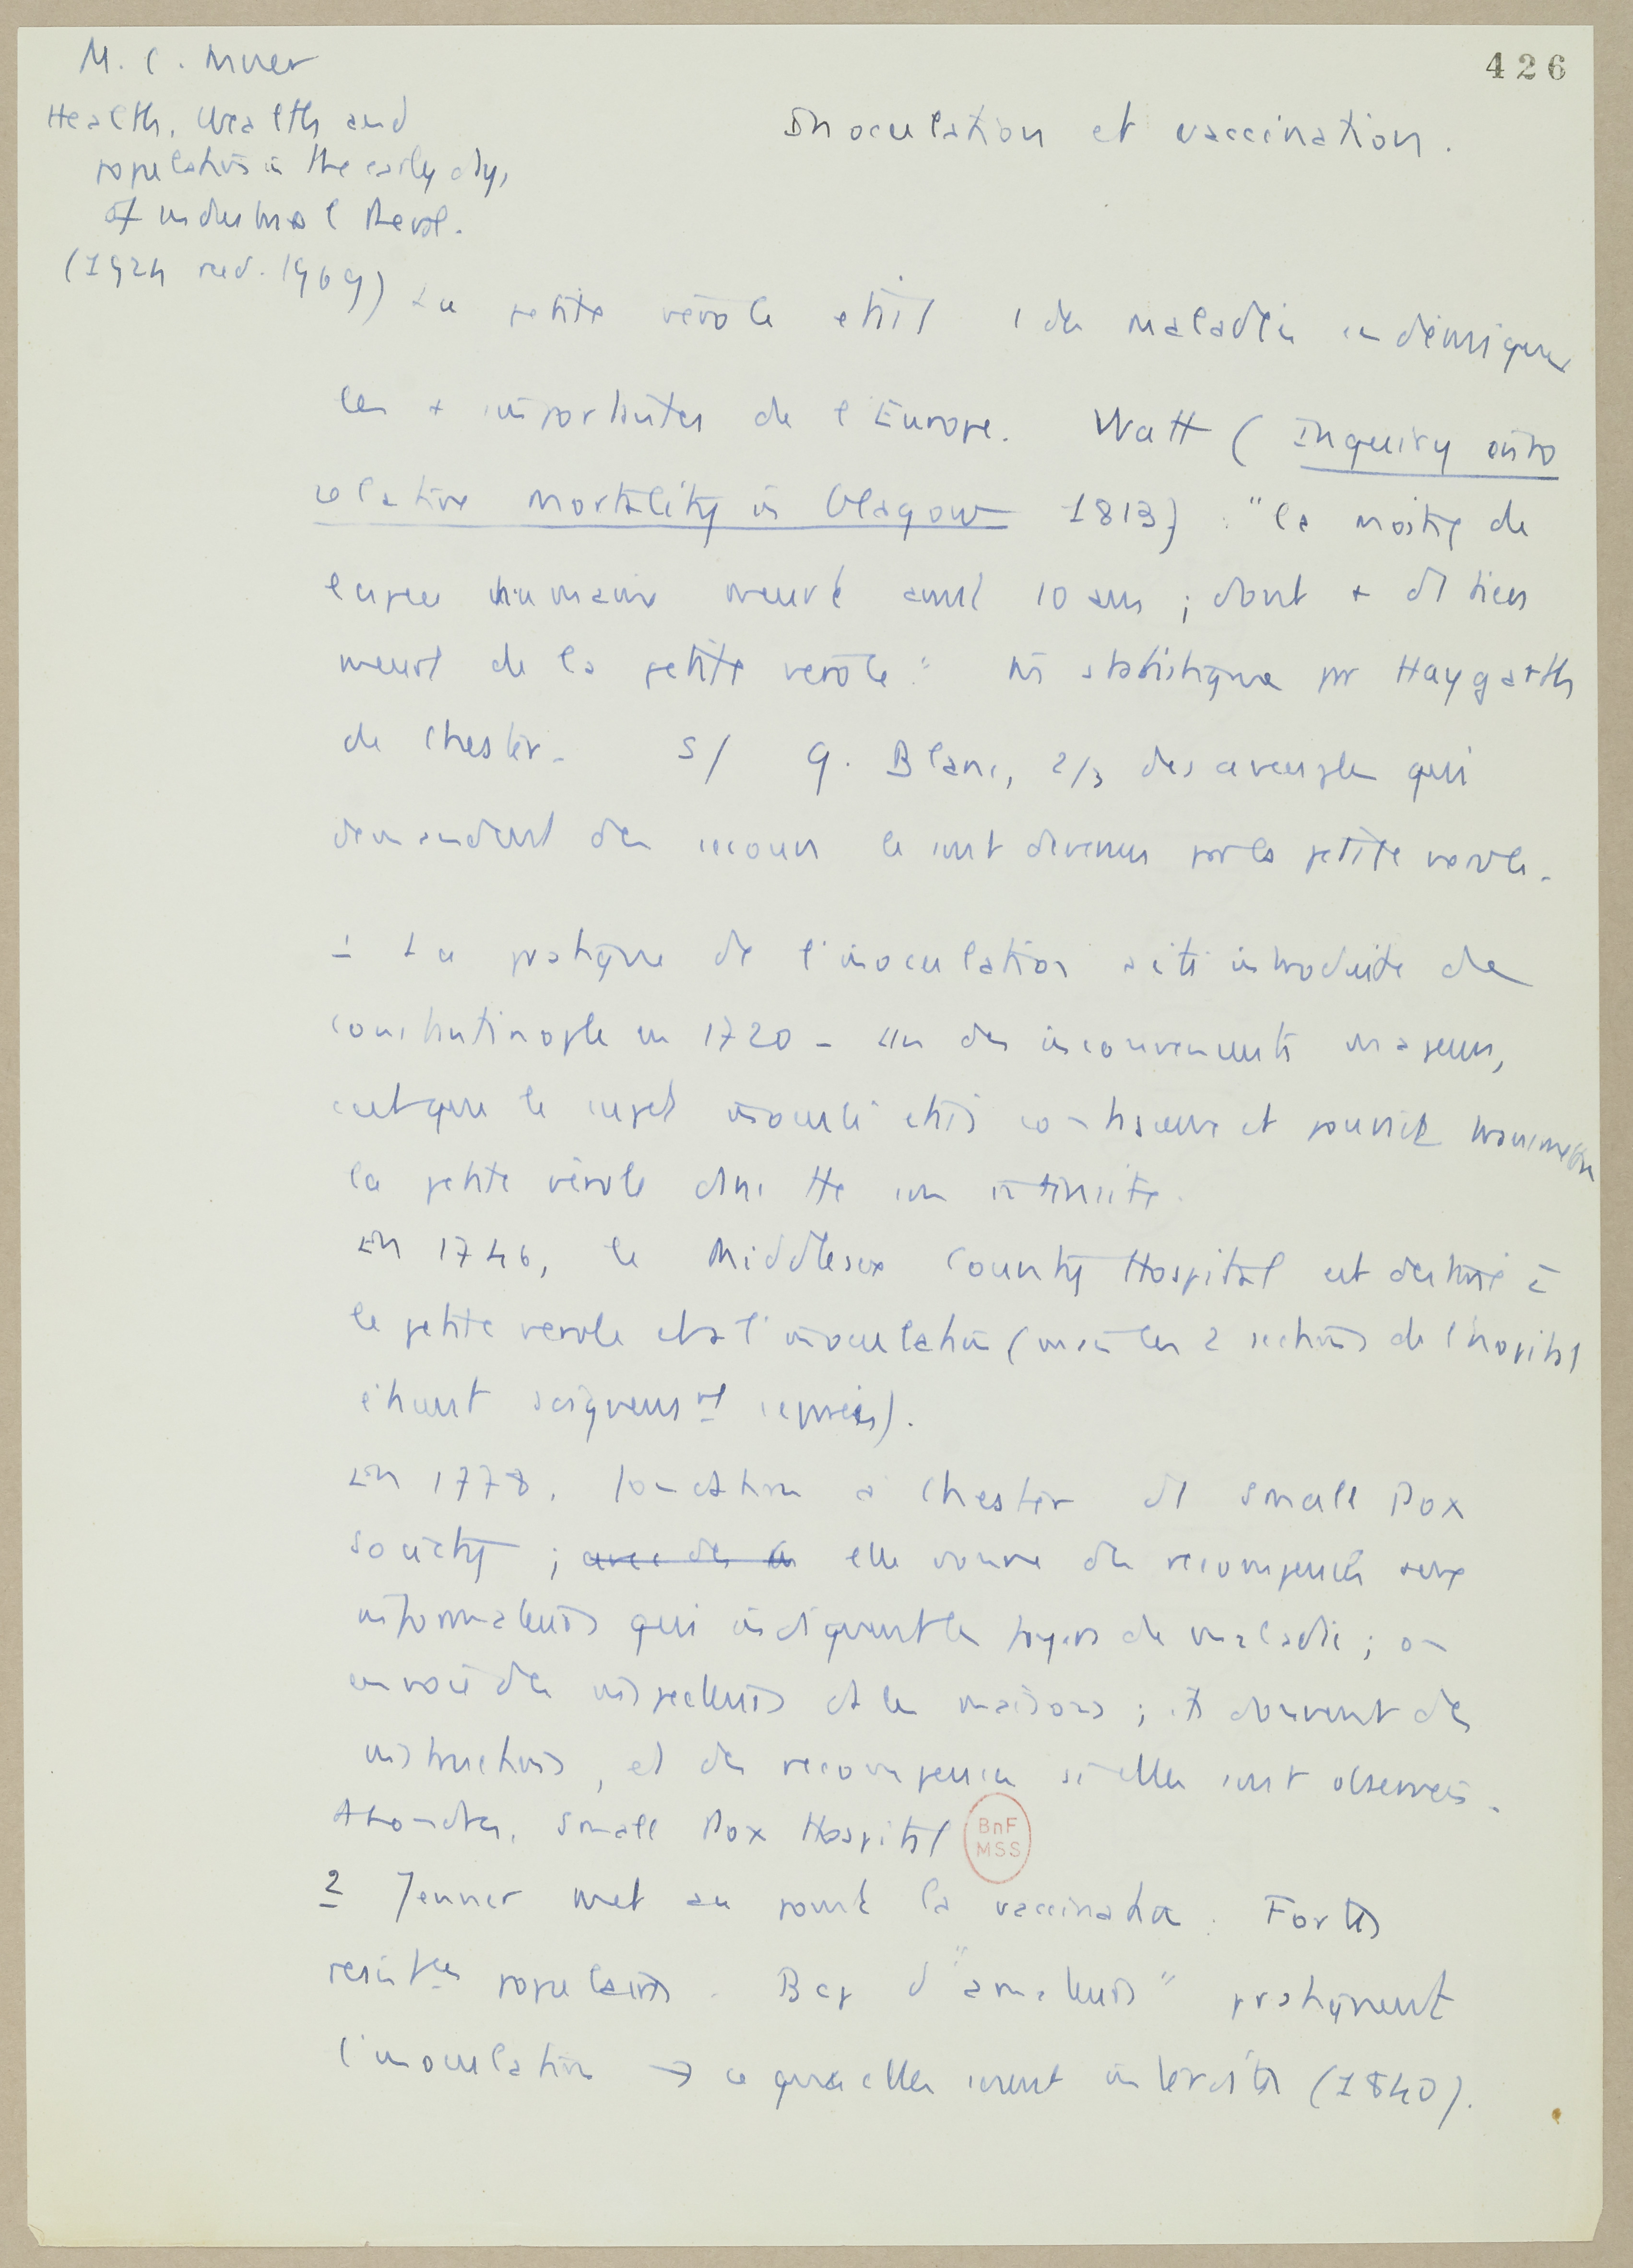 426
M. C. Buer
Health, Wealth and
population in the early days
of industrial Revol.
(1924 red. 1969)
Inoculation et vaccination.
La petite vérole était 1 des maladies endémiques
les + importantes de l'Europe. Watt (Inquiry into
relative mortality in Glasgow 1813) : "la moitié de
l'espèce humaine meurt avant 10 ans ; dont + d'1 tiers
meurt de la petite vérole". statistiques pr Haygarth
de Chester. S/ G. Blane, 2/3 des aveugles qui
demandent des secours le sont devenus par la petite vérole.
1 La pratique de l'inoculation a été introduite de
Constantinople en 1720 - Un des inconvénients majeurs,
c'est que le sujet inoculé était contagieux et pouvait transmettre
la petite vérole dans tte son intensité.
En 1746, le Middlesex County Hospital est destiné à
la petite vérole et à l'inoculation (mais les 2 sections de l'hôpital
étaient soigneusnt séparées).
En 1778, fondation à Chester d'1 Small Pox
Society ; avec des elle donne des récompenses aux
informateurs qui indiquent les foyers de maladie ; on
envoie des inspecteurs ds les maisons ; ils donnent des
instructions, et des récompenses si elles sont observées.
A Londres, Small Pox Hospital
BnF
MSS
2 Jenner met au point la vaccination. Fortes
resistces populaires. Bcp d'"amateurs" pratiquent
l'inoculation → ce que elles soient interdites (1840).